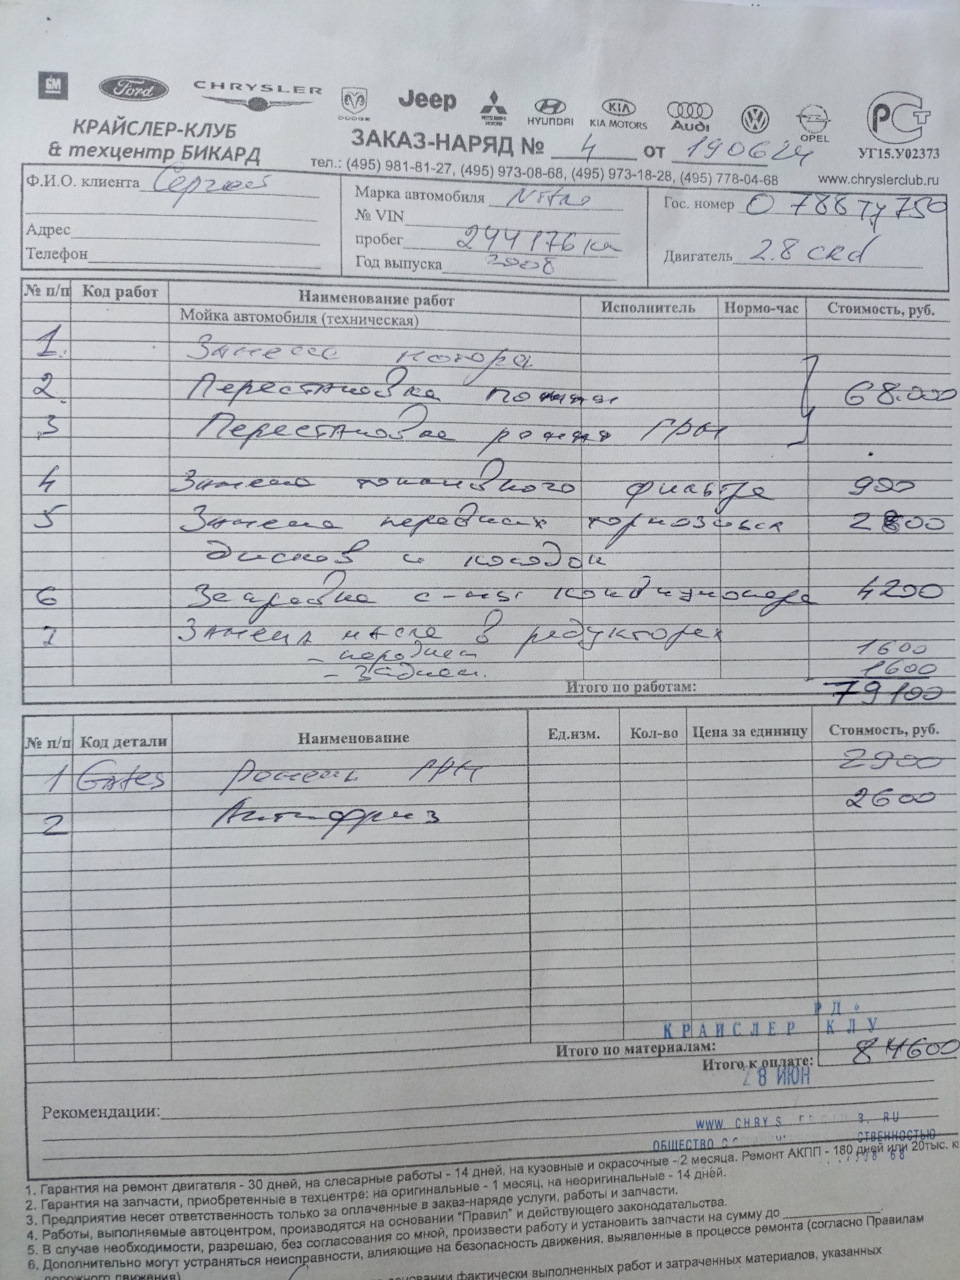 GM Ford CHRYSLER DODGE Jeep MITSUBISHI MOTORS HYUNDAI KIA KIA MOTORS Audi OPEL РСТ
КРАЙСЛЕР-КЛУБ
& техцентр БИКАРД
ЗАКАЗ-НАРЯД № 4 от 190624 УГ15.У02373
тел.: (495) 981-81-27, (495) 973-08-68, (495) 973-18-28, (495) 778-04-68 www.chryslerclub.ru
Ф.И.О. клиента Сергей Марка автомобиля Nitro Гос. номер О 788 ТУ 750
№ VIN
Адрес пробег 244176 км Двигатель 2.8 crd
Телефон Год выпуска 2008
№ п/п Код работ Наименование работ Исполнитель Нормо-час Стоимость, руб.
Мойка автомобиля (техническая)
1. Замена мотора
2. Перестановка 68.000
3 Перестановка ремня ГРМ
4 Замена топливного фильтра 900
5 Замена передних тормозных 2800
дисков и колодок
6 Заправка с-мы кондиционера 4200
7 Замена масла в редукторах
- передн 1600
- задн. 1600
Итого по работам: 79100
№ п/п Код детали Наименование Ед.изм. Кол-во Цена за единицу Стоимость, руб.
1 Gates Ремень ГРМ 2900
2 Антифриз 2600
КРАЙСЛЕР КЛУ
Итого по материалам:
Итого к оплате: 84600
28 ИЮН
Рекомендации:
ОБЩЕСТВО
1. Гарантия на ремонт двигателя - 30 дней, на слесарные работы - 14 дней, на кузовные и окрасочные - 2 месяца. Ремонт АКПП - 180 дней или 20тыс. к
2. Гарантия на запчасти, приобретенные в техцентре: на оригинальные - 1 месяц, на неоригинальные - 14 дней.
3. Предприятие несет ответственность только за оплаченные в заказ-наряде услуги, работы и запчасти.
4. Работы, выполняемые автоцентром, производятся на основании "Правил" и действующего законодательства.
5. В случае необходимости, разрешаю, без согласования со мной, произвести работу и установить запчасти на сумму до
6. Дополнительно могут устраняться неисправности, влияющие на безопасность движения, выявленные в процессе ремонта (согласно Правилам
дорожного движения)
основании фактически выполненных работ и затраченных материалов, указанных